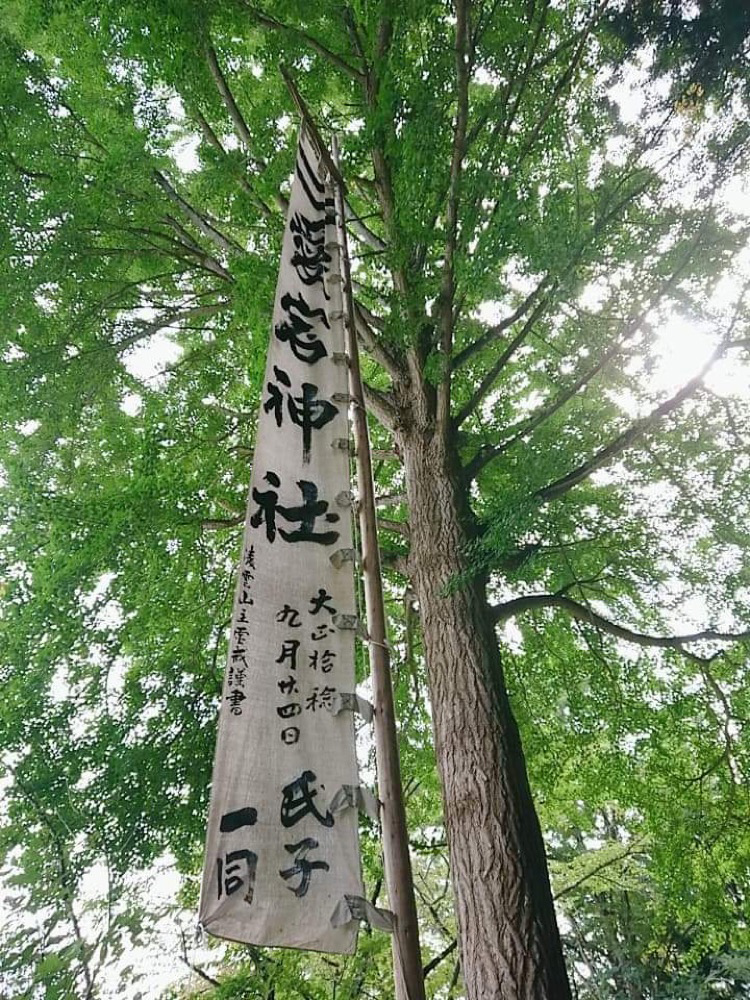 愛宕神社
大正拾稔
九月廿四日
氏子
一同
淩雲山主雪哉謹書